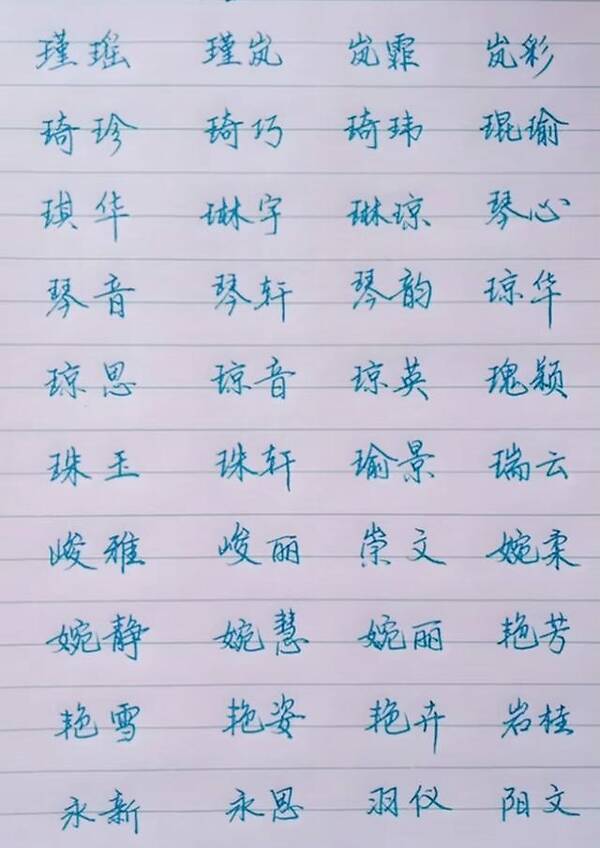 瑾瑶 瑾岚 岚霏 岚彩
琦珍 琦巧 琦玮 琨瑜
琪华 琳宇 琳琼 琴心
琴音 琴轩 琴韵 琼华
琼思 琼音 琼英 瑰颖
珠玉 珠轩 瑜景 瑞云
峻雅 峻丽 崇文 婉柔
婉静 婉慧 婉丽 艳芳
艳雪 艳姿 艳卉 岩桂
永新 永恩 羽仪 阳文